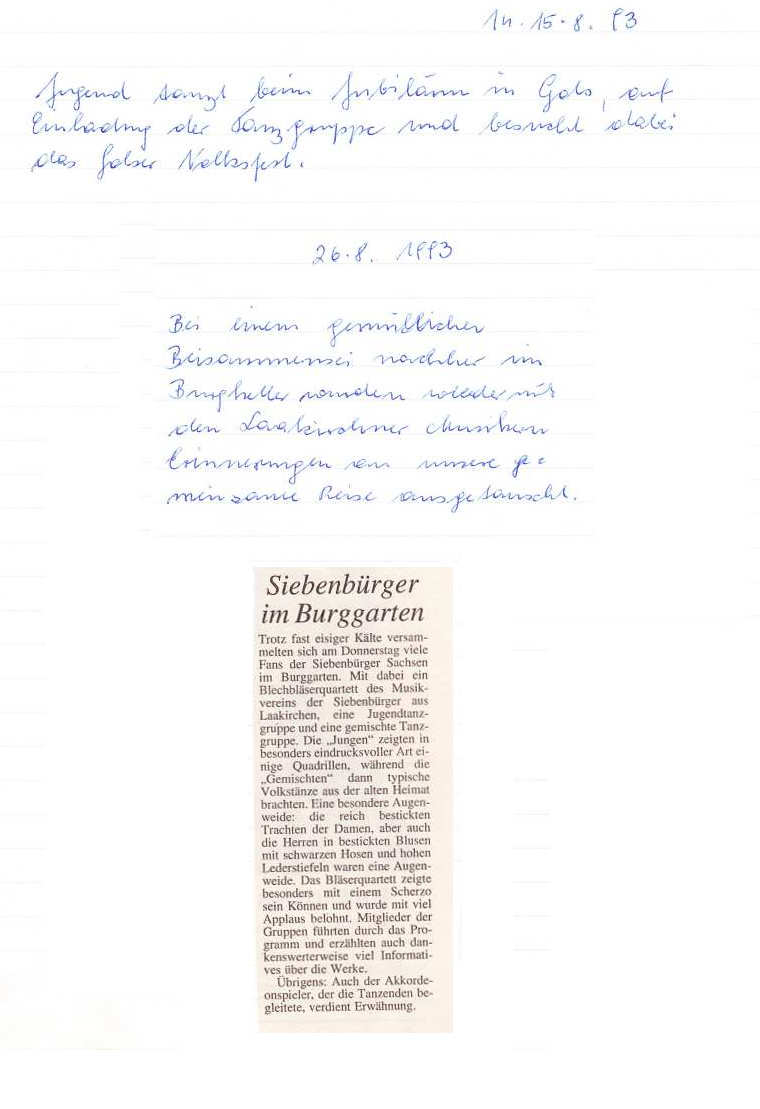 14. 15. 8. 93
Jugend tanzt beim Jubiläum in Gols, auf
Einladung der Tanzgruppe und besucht dabei
das Golser Volksfest.
26. 8. 1993
Bei einem gemütlicher
Beisammensei nachher im
Burgkeller wurden wieder mit
den Laakirchner Musikern
Erinnerungen an unsere ge
meinsame Reise ausgetauscht.
Siebenbürger
im Burggarten
Trotz fast eisiger Kälte versam-
melten sich am Donnerstag viele
Fans der Siebenbürger Sachsen
im Burggarten. Mit dabei ein
Blechbläserquartett des Musik-
vereins der Siebenbürger aus
Laakirchen, eine Jugendtanz-
gruppe und eine gemischte Tanz-
gruppe. Die „Jungen“ zeigten in
besonders eindrucksvoller Art ei-
nige Quadrillen, während die
„Gemischten“ dann typische
Volkstänze aus der alten Heimat
brachten. Eine besondere Augen-
weide: die reich bestickten
Trachten der Damen, aber auch
die Herren in bestickten Blusen
mit schwarzen Hosen und hohen
Lederstiefeln waren eine Augen-
weide. Das Bläserquartett zeigte
besonders mit einem Scherzo
sein Können und wurde mit viel
Applaus belohnt. Mitglieder der
Gruppen führten durch das Pro-
gramm und erzählten auch dan-
kenswerterweise viel Informati-
ves über die Werke.
Übrigens: Auch der Akkorde-
onspieler, der die Tanzenden be-
gleitete, verdient Erwähnung.